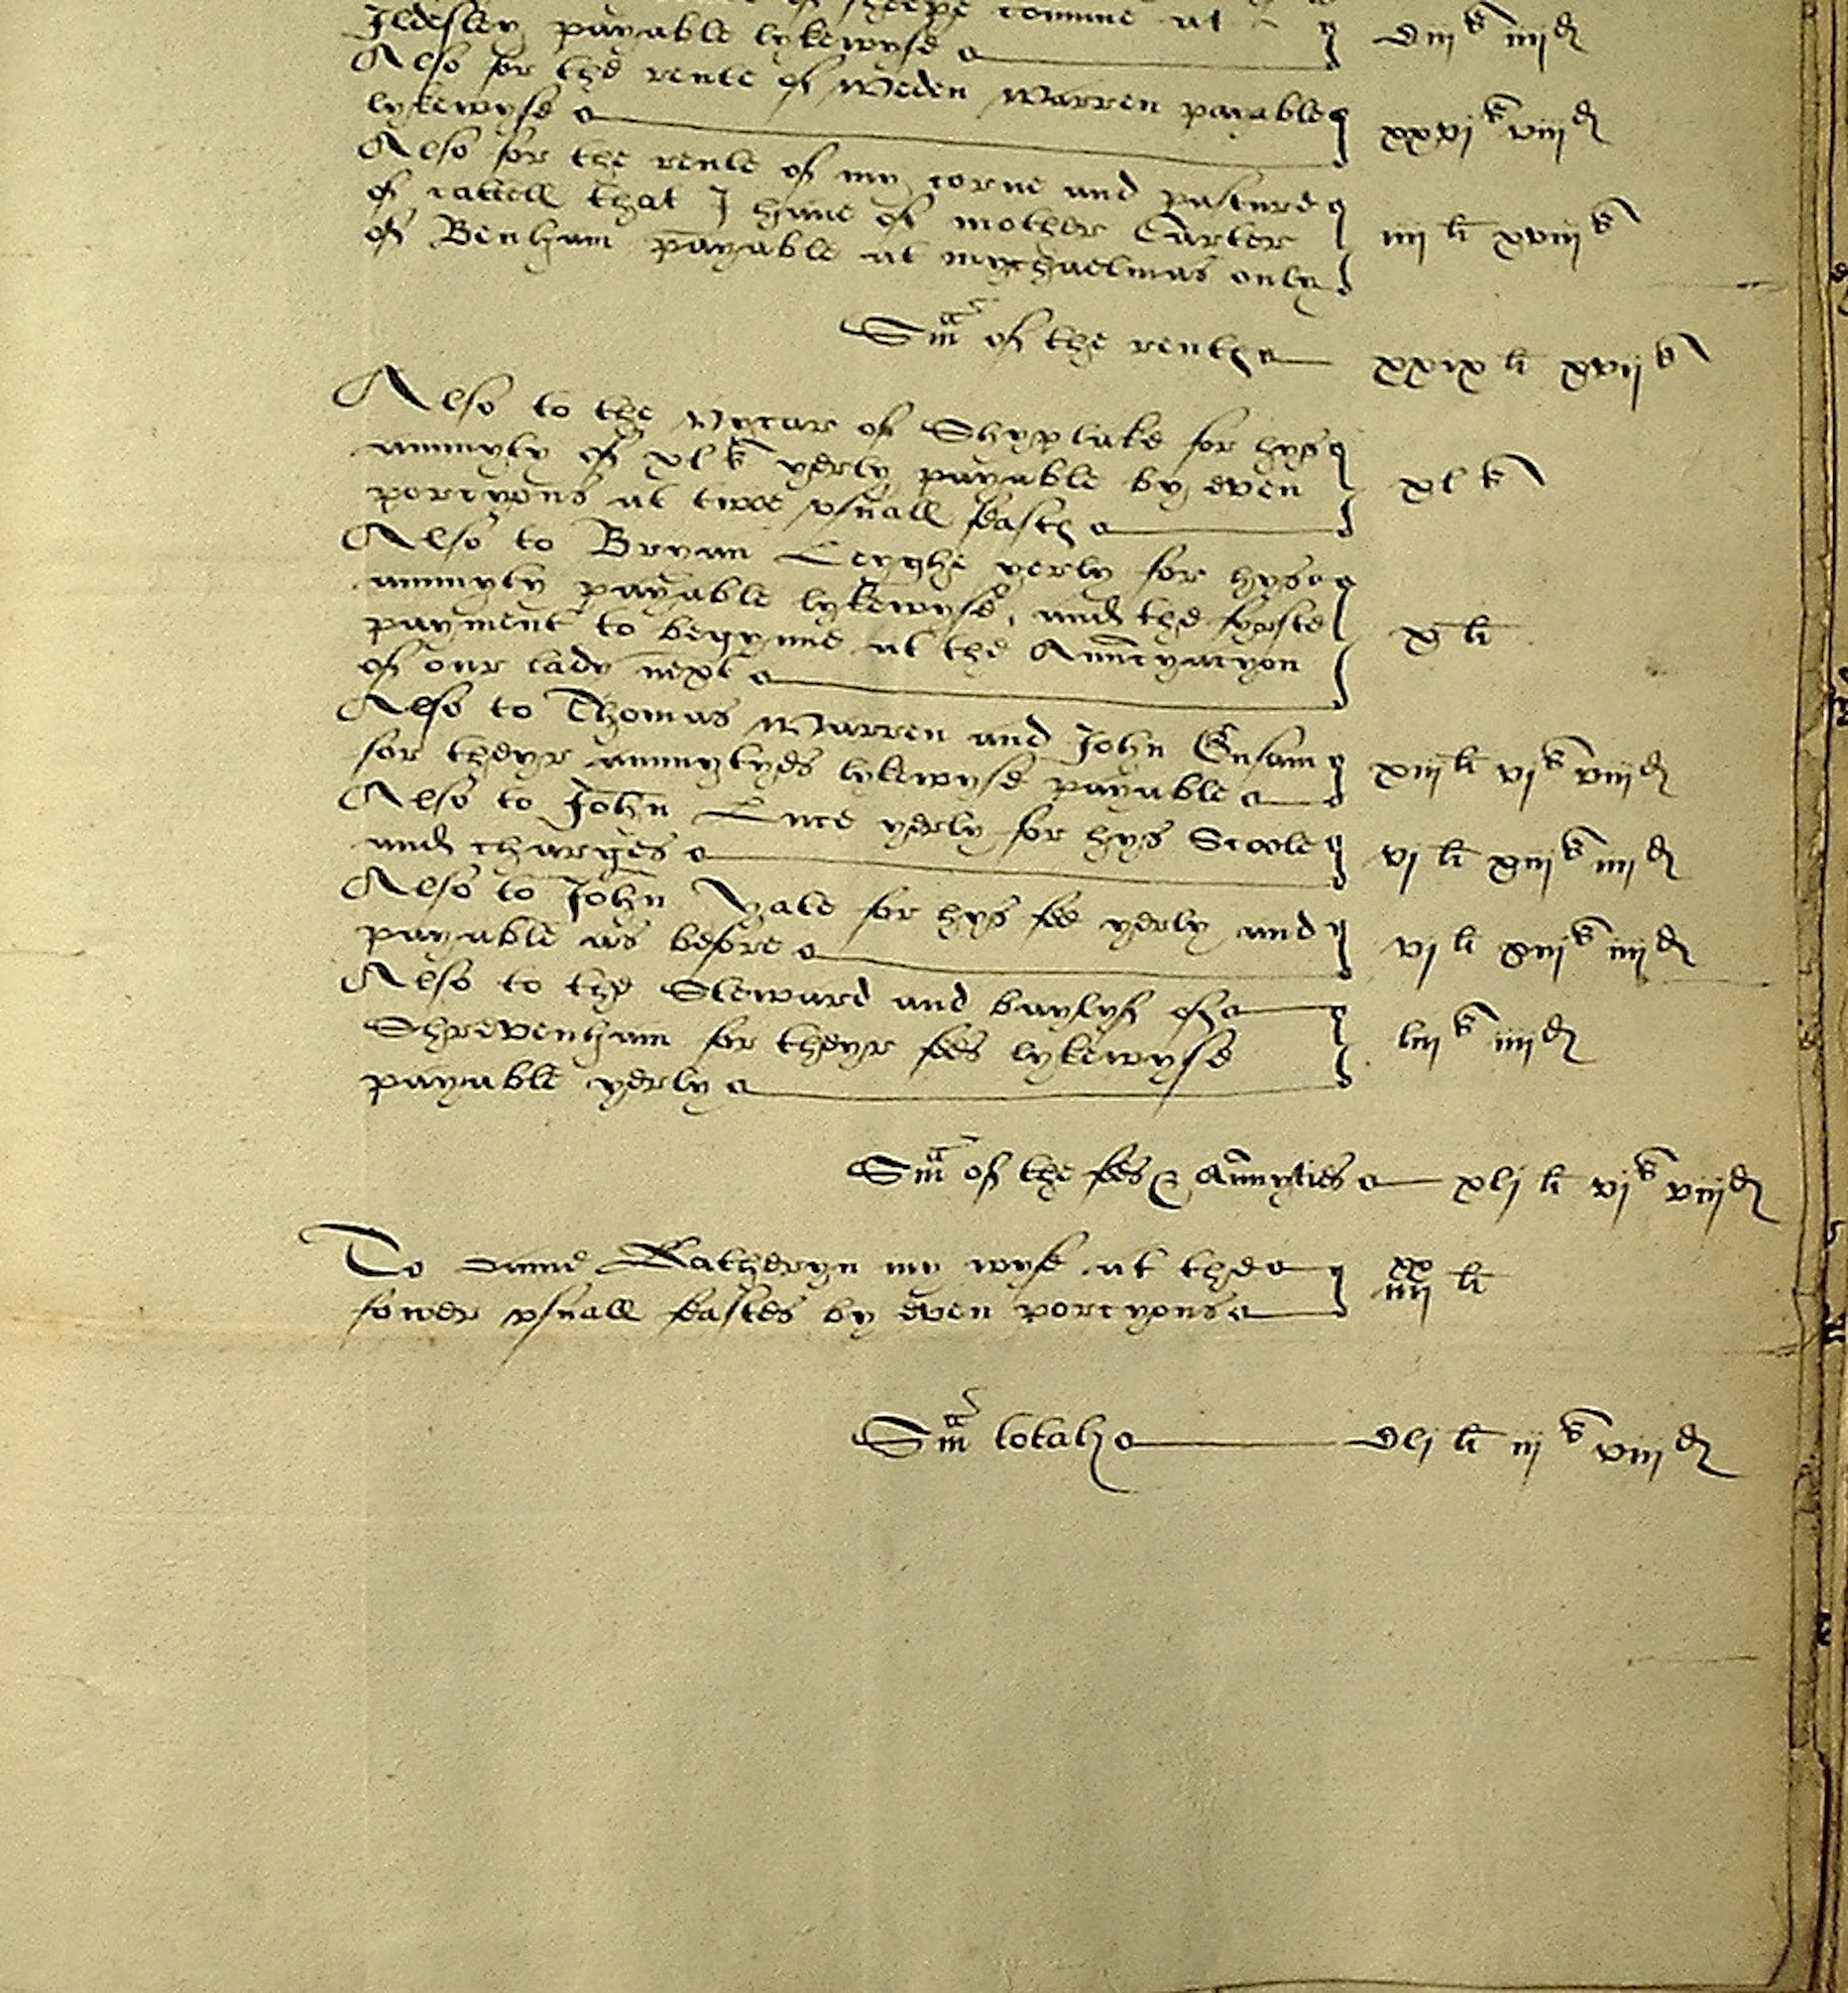 of sheepe comme at
Ildesley payable lykewyse liij s iiij d
Also for the rente of Weden Warren payable
lykewyse xxvj s viij d
Also for the rente of my corne and pasture
of cattell that I have of mother Carter iiij li xviij s
of Benham payable at mychaelmas only
Sma of the rentes xxix li xvij s
Also to the vycar of Shyplake for hys
annuyty of xl s yerly payable by even xl s
porcyons at twoe usuall feastes
Also to Bryan Leyghe yerly for hys
annuyty payable lykewyse, and the fyrste
payment to begynne at the Annucyacyon x li
of our lady next
Also to Thomas Warren and John Ensam
for theyr annuytyes lykewyse payable xiij li vj s viij d
Also to John Luce yerly for hys Scoole
and charges vj li xiij s iiij d
Also to John Yate for hys fee yerly and
payable as before vj li xiij s iiij d
Also to the Steward and baylyf of
Shrevenham for theyr fees lykewyse liij s iiij d
payable yerly
Sma of the fees & Annuyties xlj li vj s viij d
To dame Katheryn my wyf at the
fower usuall feastes by even porcyons iiij xx li
Sma totalis dlj li iij s viij d